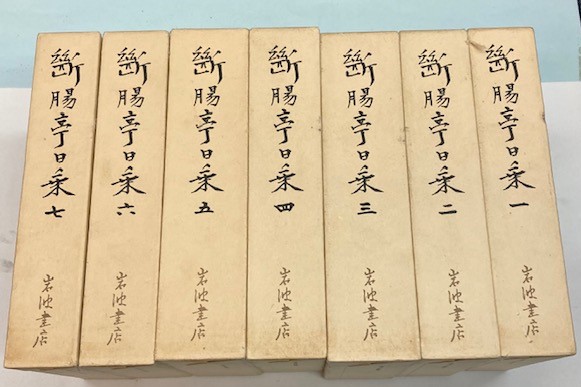 斷腸亭日乗 一
岩波書店
斷腸亭日乗 二
岩波書店
斷腸亭日乗 三
岩波書店
斷腸亭日乗 四
岩波書店
斷腸亭日乗 五
岩波書店
斷腸亭日乗 六
岩波書店
斷腸亭日乗 七
岩波書店